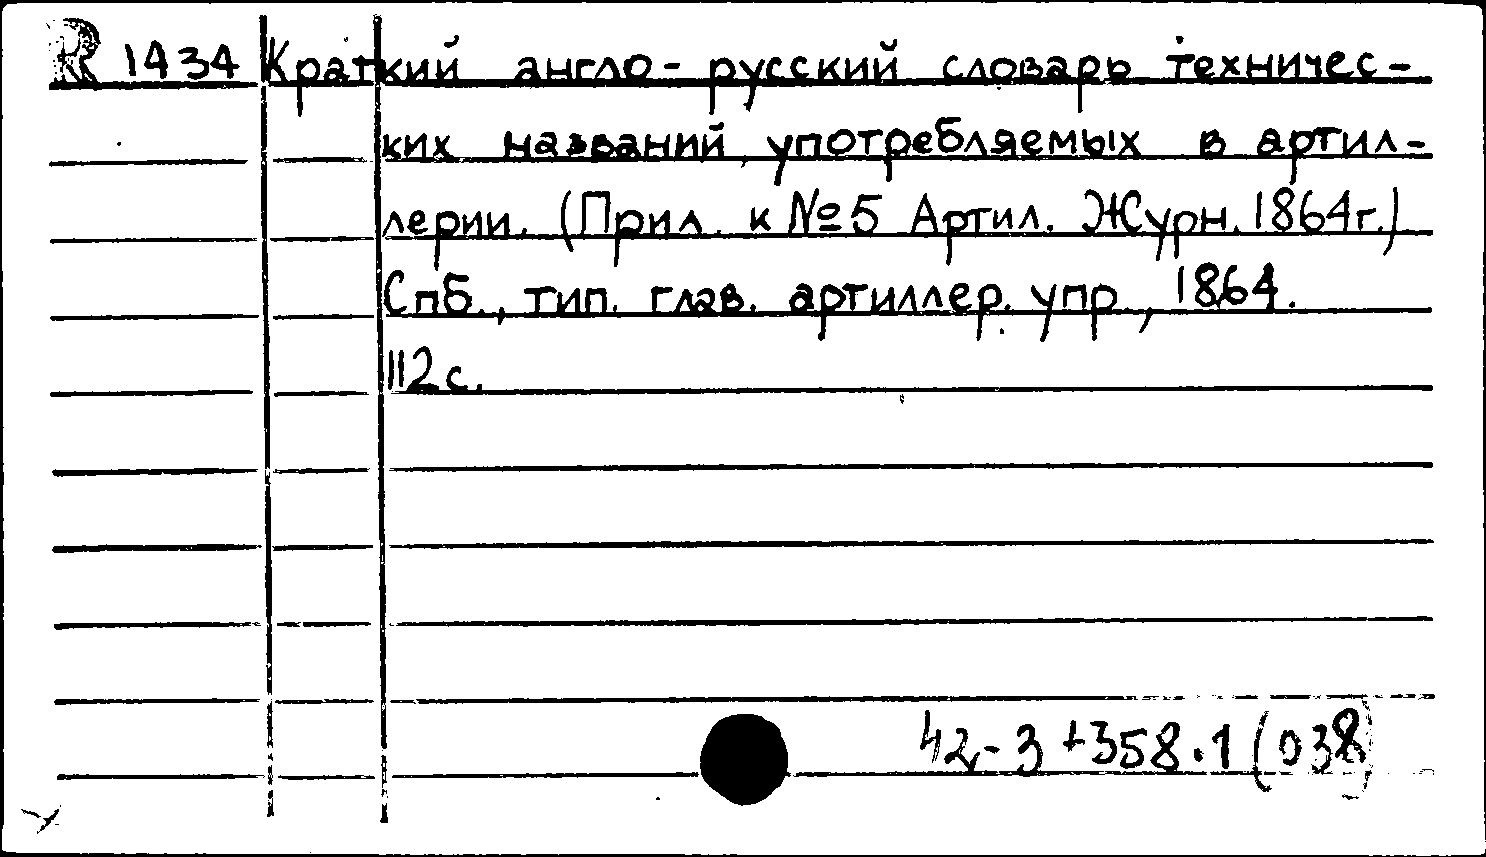 R 1434 Краткий англо-русский словарь техничес-
ких названий, употребляемых в артил-
лерии. (Прил. к №5 Артил. Журн. 1864г.)
Спб., тип. глав. артиллер. упр., 1864.
112 с.
42-3+358.1(038)